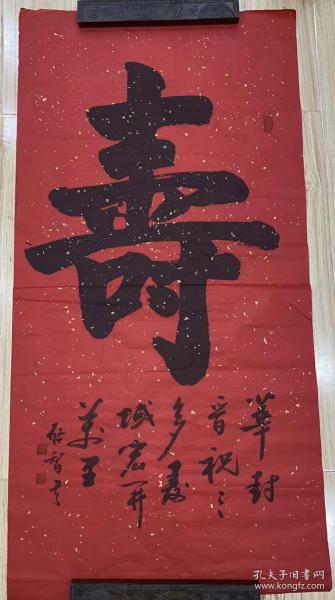 壽
華封
晋祝三
多寿
域宏開
萬里
孔夫子旧书网
www.kongfz.com